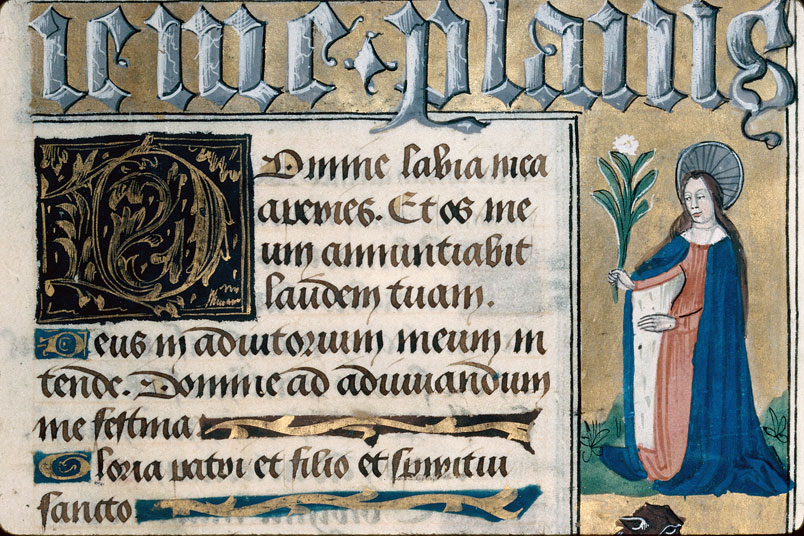 ie me · plains
Domine labia mea
aperies. Et os me
um annuntiabit
laudem tuam.
Deus in adiutorium meum in
tende. Domine ad adiuuandum
me festina
Gloria patri et filio et spiritui
sancto